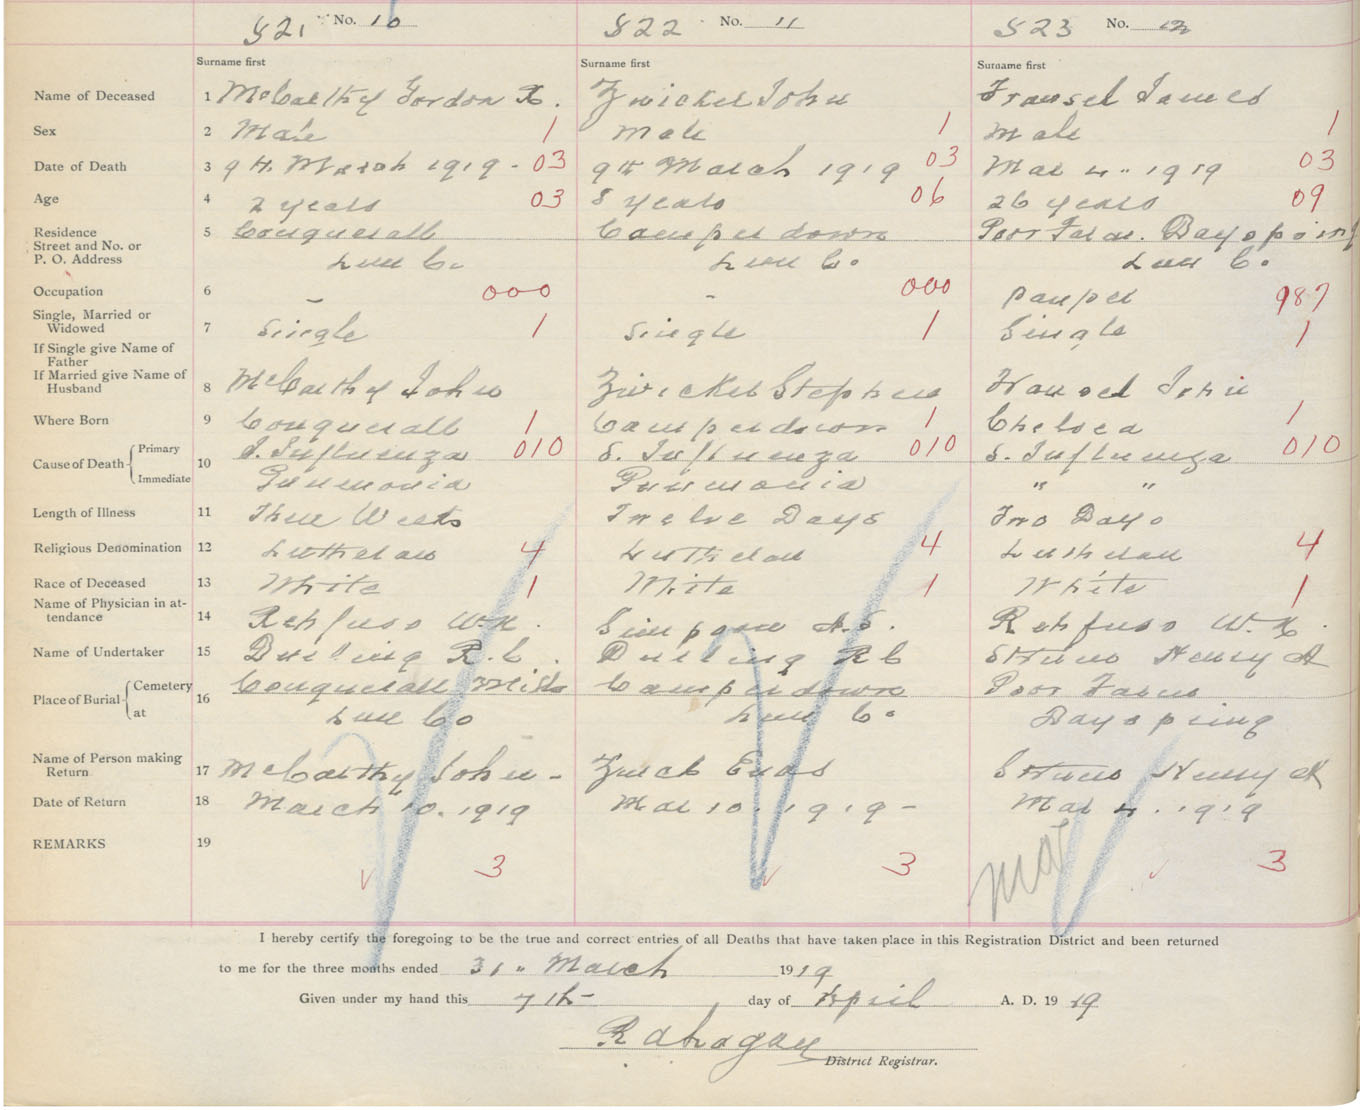 821 No. 10 822 No. 11 823 No. 12
Surname first Surname first Surname first
Name of Deceased 1 McCarthy Gordon R. Zwicker John James
Sex 2 Male 1 Male 1 Male 1
Date of Death 3 9th March 1919 - 03 9th March 1919 03 Mar 4" 1919 03
Age 4 2 years 03 8 years 06 26 years 09
Residence 5 Conquerall Camperdown Poor Farm. Dayspring
Street and No. or
P. O. Address Lun Co. Lun Co. Lun Co.
Occupation 6 - 000 - 000 Pauper 987
Single, Married or
Widowed 7 Single 1 Single 1 Single 1
If Single give Name of
Father
If Married give Name of
Husband 8 McCarthy John Zwicker Stephen John
Where Born 9 Conquerall 1 Camperdown 1 Chelsea 1
Cause of Death Primary 10 S. Influenza 010 S. Influenza 010 S. Influenza 010
Immediate Pneumonia Pneumonia " "
Length of Illness 11 Three Weeks Twelve Days Two Days
Religious Denomination 12 Lutheran 4 Lutheran 4 Lutheran 4
Race of Deceased 13 White 1 White 1 White 1
Name of Physician in at-
tendance 14 Rehfuss W. N. Simpson Rehfuss W. N.
Name of Undertaker 15 R. C. R C Henry A
Place of Burial Cemetery 16 Conquerall Mills Camperdown Poor Farm
at Lun Co Lun Co. Dayspring
Name of Person making
Return 17 McCarthy John - Enos Henry A
Date of Return 18 March 10. 1919 Mar 10. 1919 - Mar 4. 1919
REMARKS 19
3 3 3
I hereby certify the foregoing to be the true and correct entries of all Deaths that have taken place in this Registration District and been returned
to me for the three months ended 31" March 1919
Given under my hand this 7th - day of April A. D. 19 19
District Registrar.